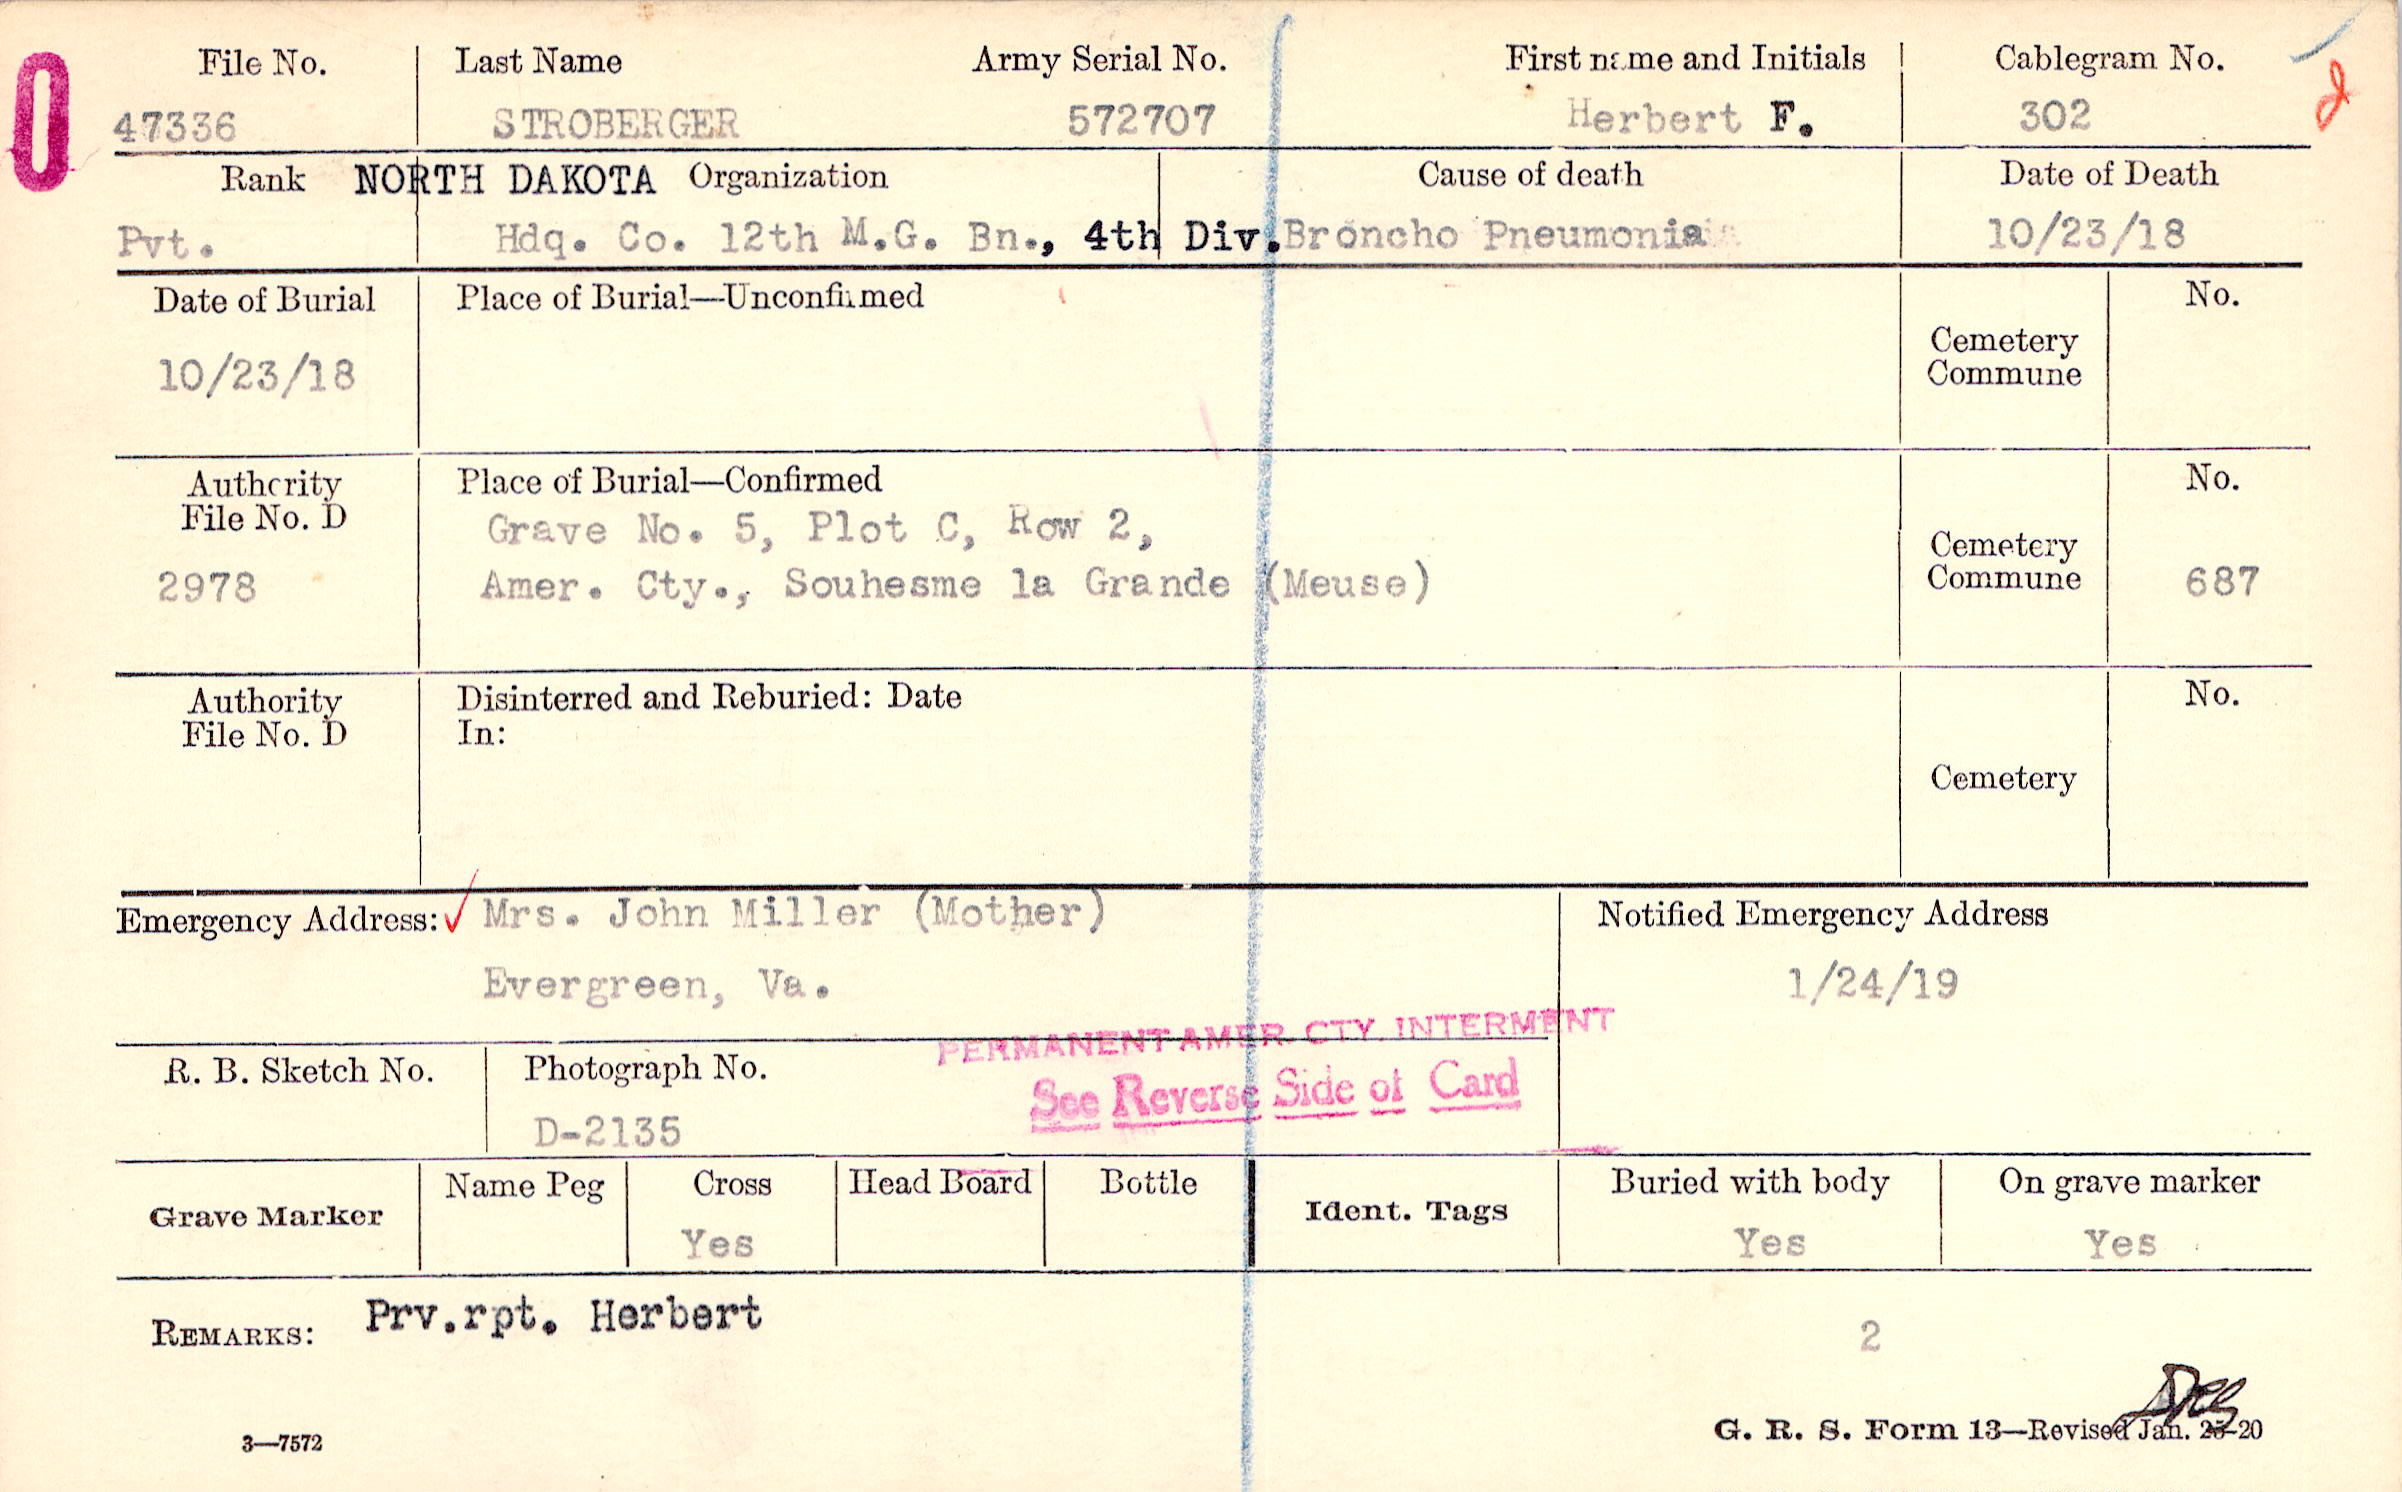 0
File No. Last Name Army Serial No. First name and Initials Cablegram No.
47336 STROBERGER 572707 Herbert F. 302
2
Rank NORTH DAKOTA Organization Cause of death Date of Death
Pvt. Hdq. Co. 12th M.G. Bn., 4th Div. Broncho Pneumonia 10/23/18
Date of Burial Place of Burial—Unconfirmed No.
10/23/18 Cemetery
Commune
Authority Place of Burial—Confirmed No.
File No. D Grave No. 5, Plot C, Row 2,
Cemetery
2978 Amer. Cty., Souhesme la Grande (Meuse) Commune 687
Authority Disinterred and Reburied: Date No.
File No. D In:
Cemetery
Emergency Address: Mrs. John Miller (Mother) Notified Emergency Address
Evergreen, Va. 1/24/19
PERMANENT AMER. CTY. INTERMENT
R. B. Sketch No. Photograph No. See Reverse Side of Card
D-2135
Grave Marker Name Peg Cross Head Board Bottle Ident. Tags Buried with body On grave marker
Yes Yes Yes
REMARKS: Prv.rpt. Herbert 2
3—7572 G. R. S. Form 13—Revised Jan. 20